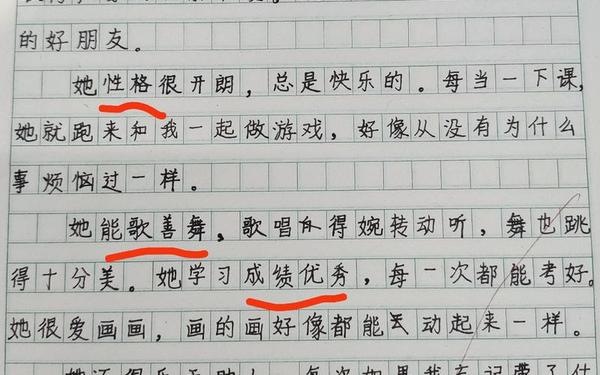 的好朋友。
她性格很开朗，总是快乐的。每当一下课，
她就跑来和我一起做游戏，好像从没有为什么
事烦恼过一样。
她能歌善舞，歌唱得婉转动听，舞也跳
得十分美。她学习成绩优秀，每一次都能考好。
她很爱画画，画的画好像都能动起来一样。